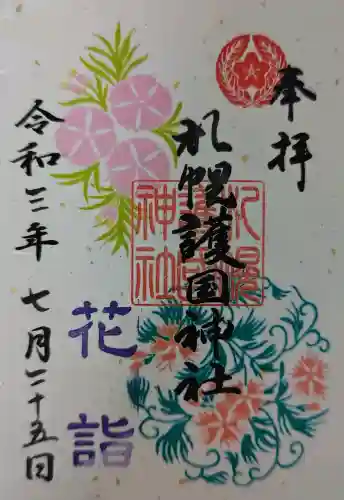 奉拝
札幌護国神社
札幌護国神社
花詣
令和三年七月二十五日